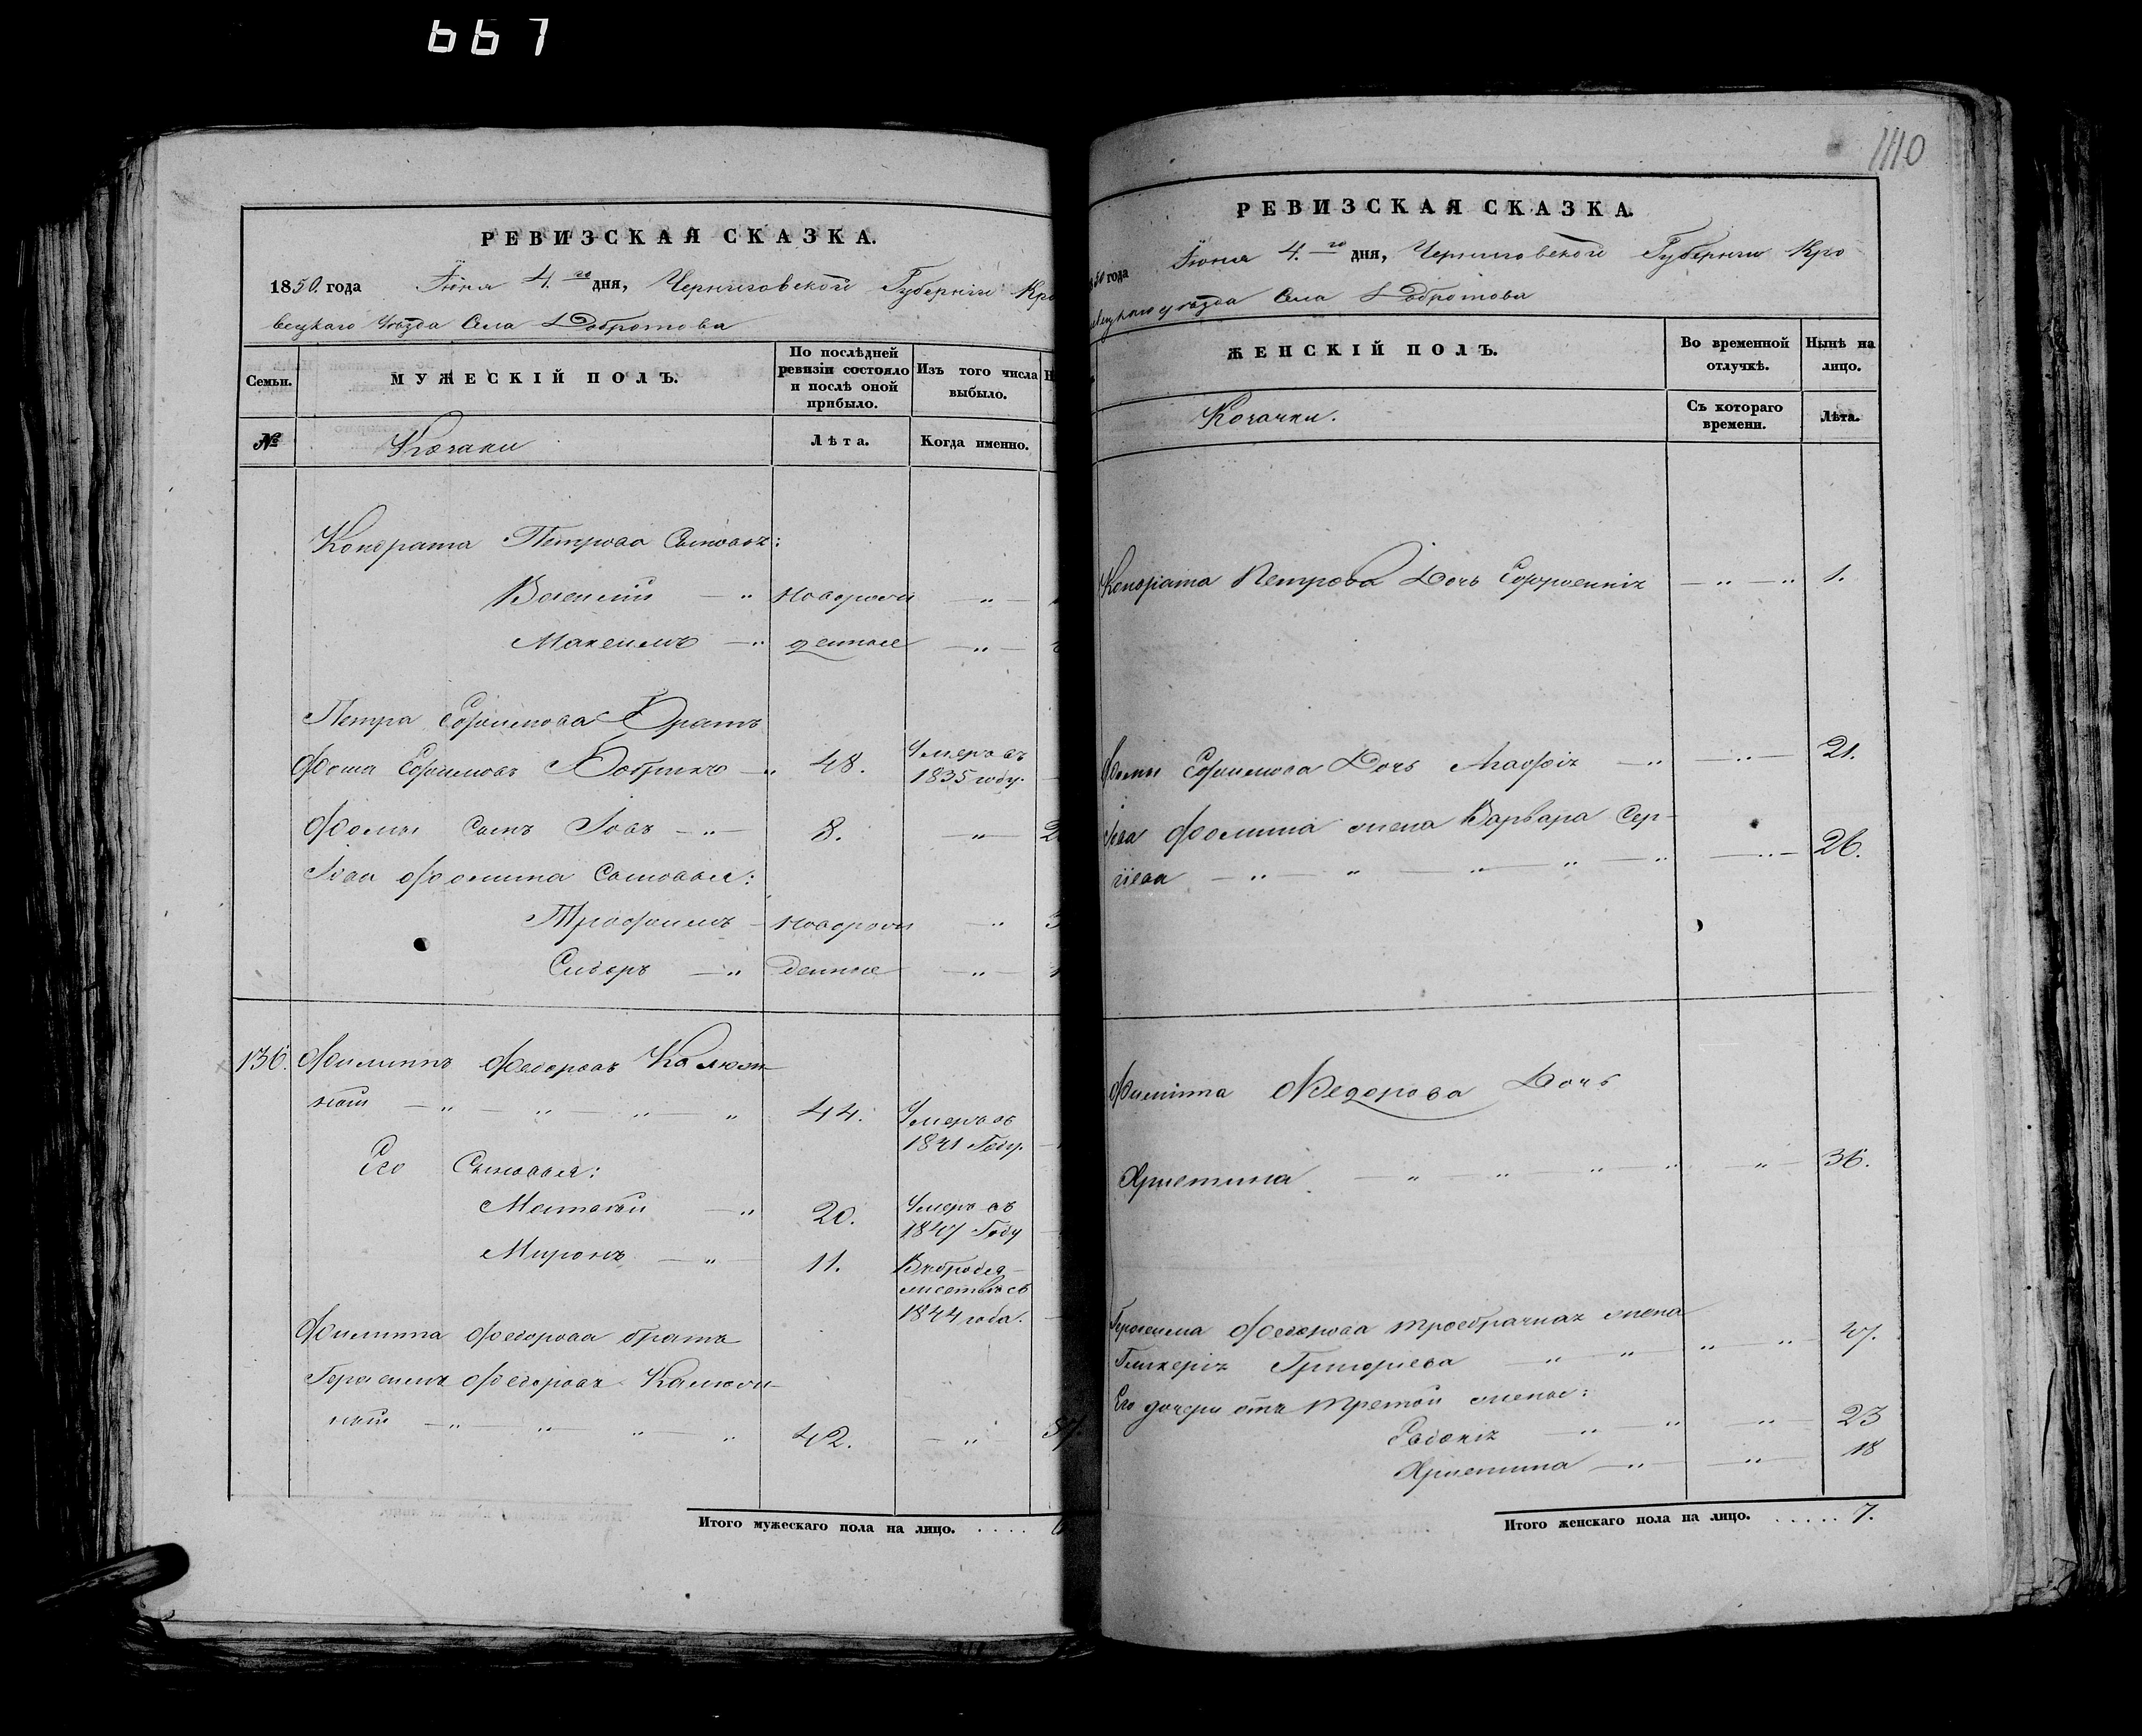 667
РЕВИЗСКАЯ СКАЗКА.
1850. года Іюня 4.го дня, Черниговской Губерніи Кро
вецкаго Уѣзда Села Добротова
Семьи.
МУЖЕСКІЙ ПОЛЪ.
По послѣдней
ревизіи состояло
и послѣ оной
прибыло.
Изъ того числа
выбыло.
№
Козаки
Лѣта.
Когда именно.
Кондрата Петрова Сыновья:
новорож
Максимъ —„ денные —„—
Петра Ефимова Братъ
Фома Ефимовъ Бобрикъ —„ 48. Умеръ въ
1835 году.
Фомы Сынъ Іовъ —„— 8. —„—
Іова Фомина Сыновья:
Трофимъ — новорож —„
Сидоръ —„ денные —„—
136. Филиппъ Федоровъ Калюж
ный —„—„—„—„ 44. Умеръ въ
1841 Году.
Его Сыновья:
20. Умеръ въ
1847 Году
Миронъ —„— 11.
1844 года.
Филиппа Федорова братъ
Герасимъ Федоровъ Калюж
ный —„—„—„—„ 42. —„ 57.
Итого мужескаго пола на лицо. . . . .
1110
РЕВИЗСКАЯ СКАЗКА.
50 года Іюня 4.го дня, Черниговской Губерніи Кро
вецкаго уѣзда Села Добротова
ЖЕНСКІЙ ПОЛЪ.
Во временной
отлучкѣ.
Нынѣ на
лицо.
Козачки.
Съ котораго
времени.
Лѣта.
Кондрата Петрова Дочь Ефросинія —„—„ 1.
Фомы Ефимова Дочь Агафія —„ —„— 21.
Іова Фомина жена Варвара Сер-
гіева —„—„—„—„—„ —„— 26.
Филиппа Федорова Дочь
Христина —„—„—„—„ „— 36.
Герасима Федорова троебрачная жена
Гликерія Григориева —„—„ „—„ 47.
Его дочери отъ третой жены:
Евдокія —„—„ —„— 23
Христина —„— —„— 18
Итого женскаго пола на лицо. . . . . . 7.